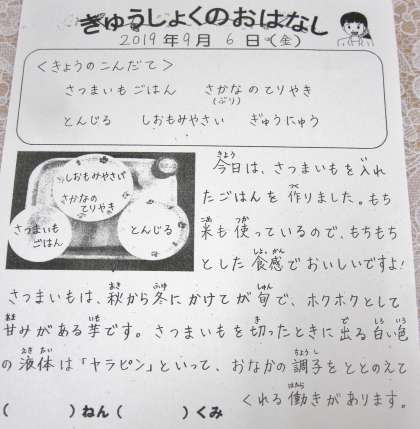 きゅうしょくのおはなし
2019年9月6日(金)
<きょうのこんだて>
さつまいもごはん さかなのてりやき
(ぶり)
とんじる しおもみやさい ぎゅうにゅう
しおもみやさい
さかなの
てりやき
さつまいも
ごはん
とんじる
今日は、さつまいもを入れ
たごはんを作りました。もち
米も使っているので、もちもち
とした食感でおいしいですよ!
さつまいもは、秋から冬にかけてが旬で、ホクホクとして
甘みがある芋です。さつまいもを切ったときに出る白い色
の液体は「ヤラピン」といって、おなかの調子をととのえて
くれる働きがあります。
( )ねん( )くみ